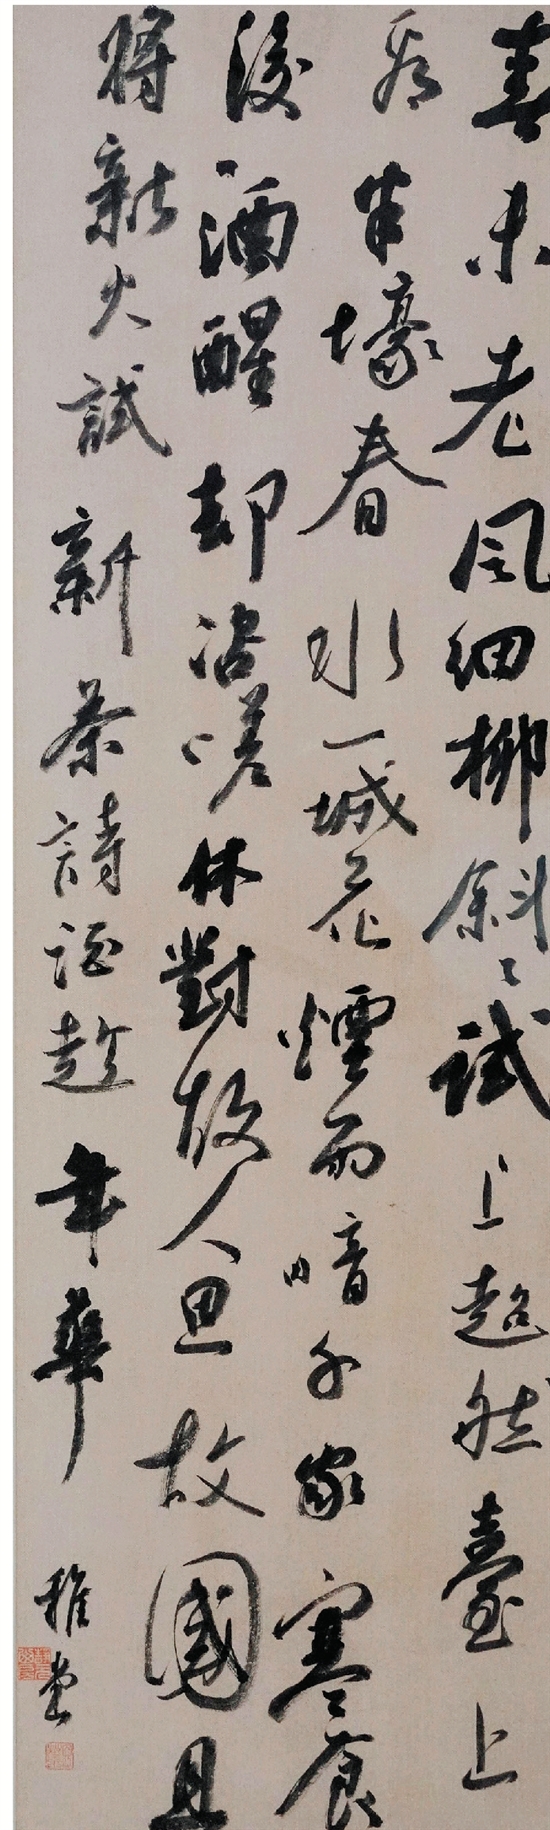 春未老風細柳斜〻試上超然臺上
看半壕春水一城花煙雨暗千家寒食
後酒醒却咨嗟休對故人思故國且
將新火試新茶詩酒趁年華
稚堂